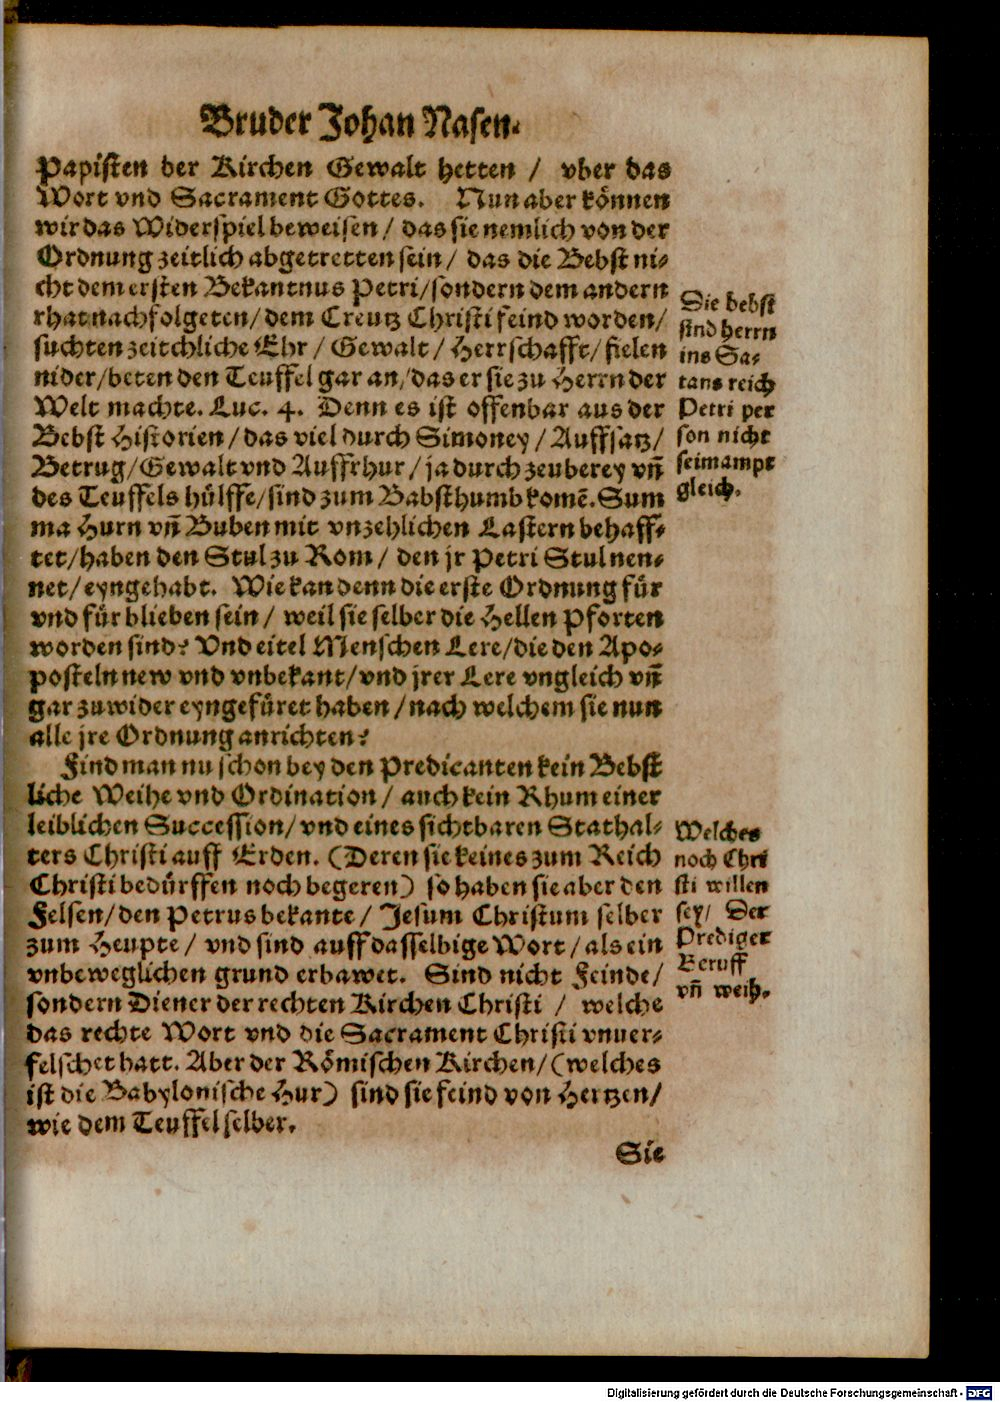 Bruder Johan Nasen.
Papisten der Kirchen Gewalt hetten / vber das
Wort vnd Sacrament Gottes. Nun aber können
wir das Widerspiel beweisen / das sie nemlich von der
Ordnung zeitlich abgetretten sein / das die Bebst ni⸗
cht dem ersten Bekantnus Petri / sondern dem andern
rhat nachfolgeten / dem Creutz Christi feind worden /
suchten zeitchliche Ehr / Gewalt / Herrschafft / fielen
nider / beten den Teuffel gar an / das er sie zu Herrn der
Welt machte. Luc. 4. Denn es ist offenbar aus der
Bebst Historien / das viel durch Simoney / Auffsatz /
Betrug / Gewalt vnd Auffrhur / ja durch zeuberey vñ
des Teuffels hülffe / sind zum Babsthumb komē. Sum
ma Hurn vñ Buben mit vnzehlichen Lastern behaff⸗
tet / haben den Stul zu Rom / den jr Petri Stul nen⸗
net / eyngehabt. Wie kan denn die erste Ordnung für
vnd für blieben sein / weil sie selber die Hellen Pforten
worden sind? Vnd eitel Menschen Lere / die den Apo⸗
posteln new vnd vnbekant / vnd jrer Lere vngleich vñ
gar zuwider eyngefüret haben / nach welchem sie nun
alle jre Ordnung anrichten?
Find man nu schon bey den Predicanten kein Bebst
liche Weihe vnd Ordination / auch kein Rhum einer
leiblichen Succession / vnd eines sichtbaren Stathal⸗
ters Christi auff Erden. (Deren sie keines zum Reich
Christi bedürffen noch begeren) so haben sie aber den
Felsen / den Petrus bekante / Jesum Christum selber
zum Heupte / vnd sind auff dasselbige Wort / als ein
vnbeweglichen grund erbawet. Sind nicht Feinde /
sondern Diener der rechten Kirchen Christi / welche
das rechte Wort vnd die Sacrament Christi vnuer⸗
felschet hatt. Aber der Römischen Kirchen / (welches
ist die Babylonische Hur) sind sie feind von Hertzen /
wie dem Teuffel selber.
Sie
Die bebst
sind herrn
ins Sa⸗
tans reich
Petri per
son nicht
seim ampt
gleich.
Welches
noch Chri
sti willen
sey / Der
Prediger
Beruff
vñ weih.
Digitalisierung gefördert durch die Deutsche Forschungsgemeinschaft - DFG